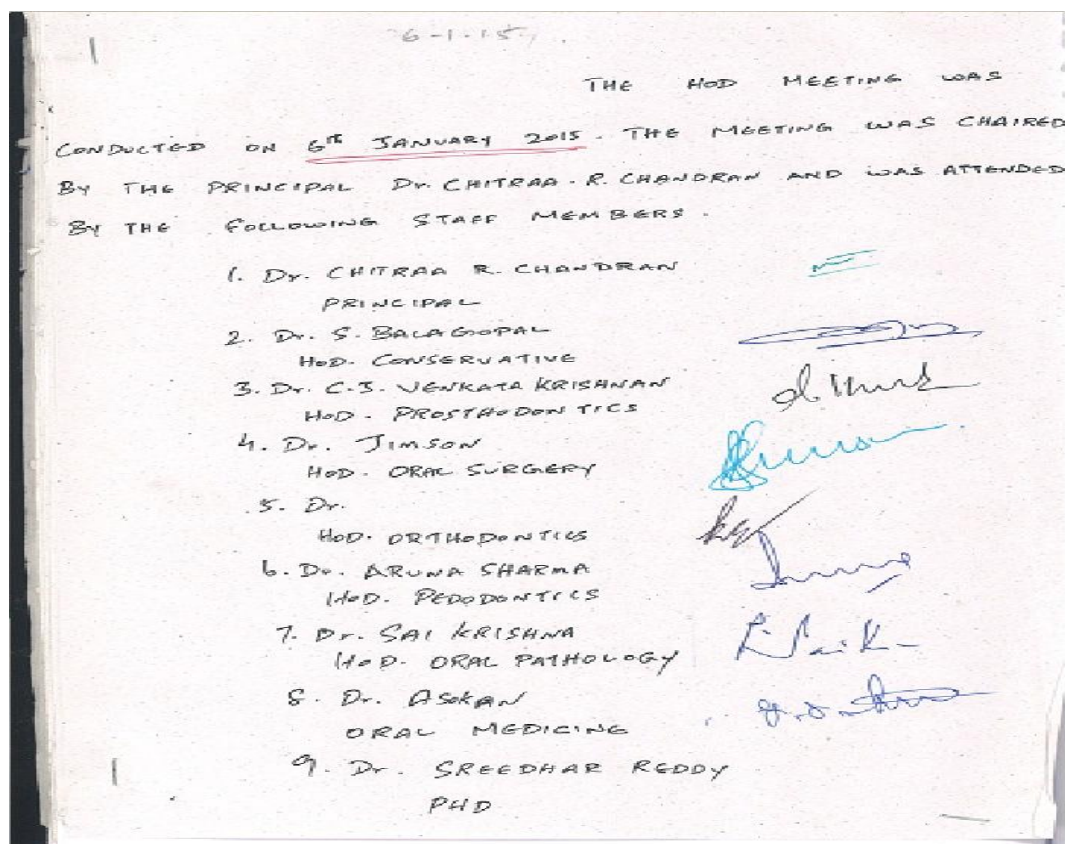 6-1-15
THE HOD MEETING WAS
CONDUCTED ON 6th JANUARY 2015. THE MEETING WAS CHAIRED
BY THE PRINCIPAL Dr. CHITRAA. R. CHANDRAN AND WAS ATTENDED
BY THE FOLLOWING STAFF MEMBERS.
1. Dr. CHITRAA R. CHANDRAN
PRINCIPAL
2. Dr. S. BALAGOPAL
HOD. CONSERVATIVE
3. Dr. C.J. VENKATA KRISHNAN
HOD. PROSTHODONTICS
4. Dr. JIMSON
HOD. ORAL SURGERY
5. Dr.
HOD. ORTHODONTICS
6. Dr. ARUNA SHARMA
HOD. PEDODONTICS
7. Dr. SAI KRISHNA
HOD. ORAL PATHOLOGY
8. Dr. ASOKAN
ORAL MEDICINE
9. Dr. SREEDHAR REDDY
PHD